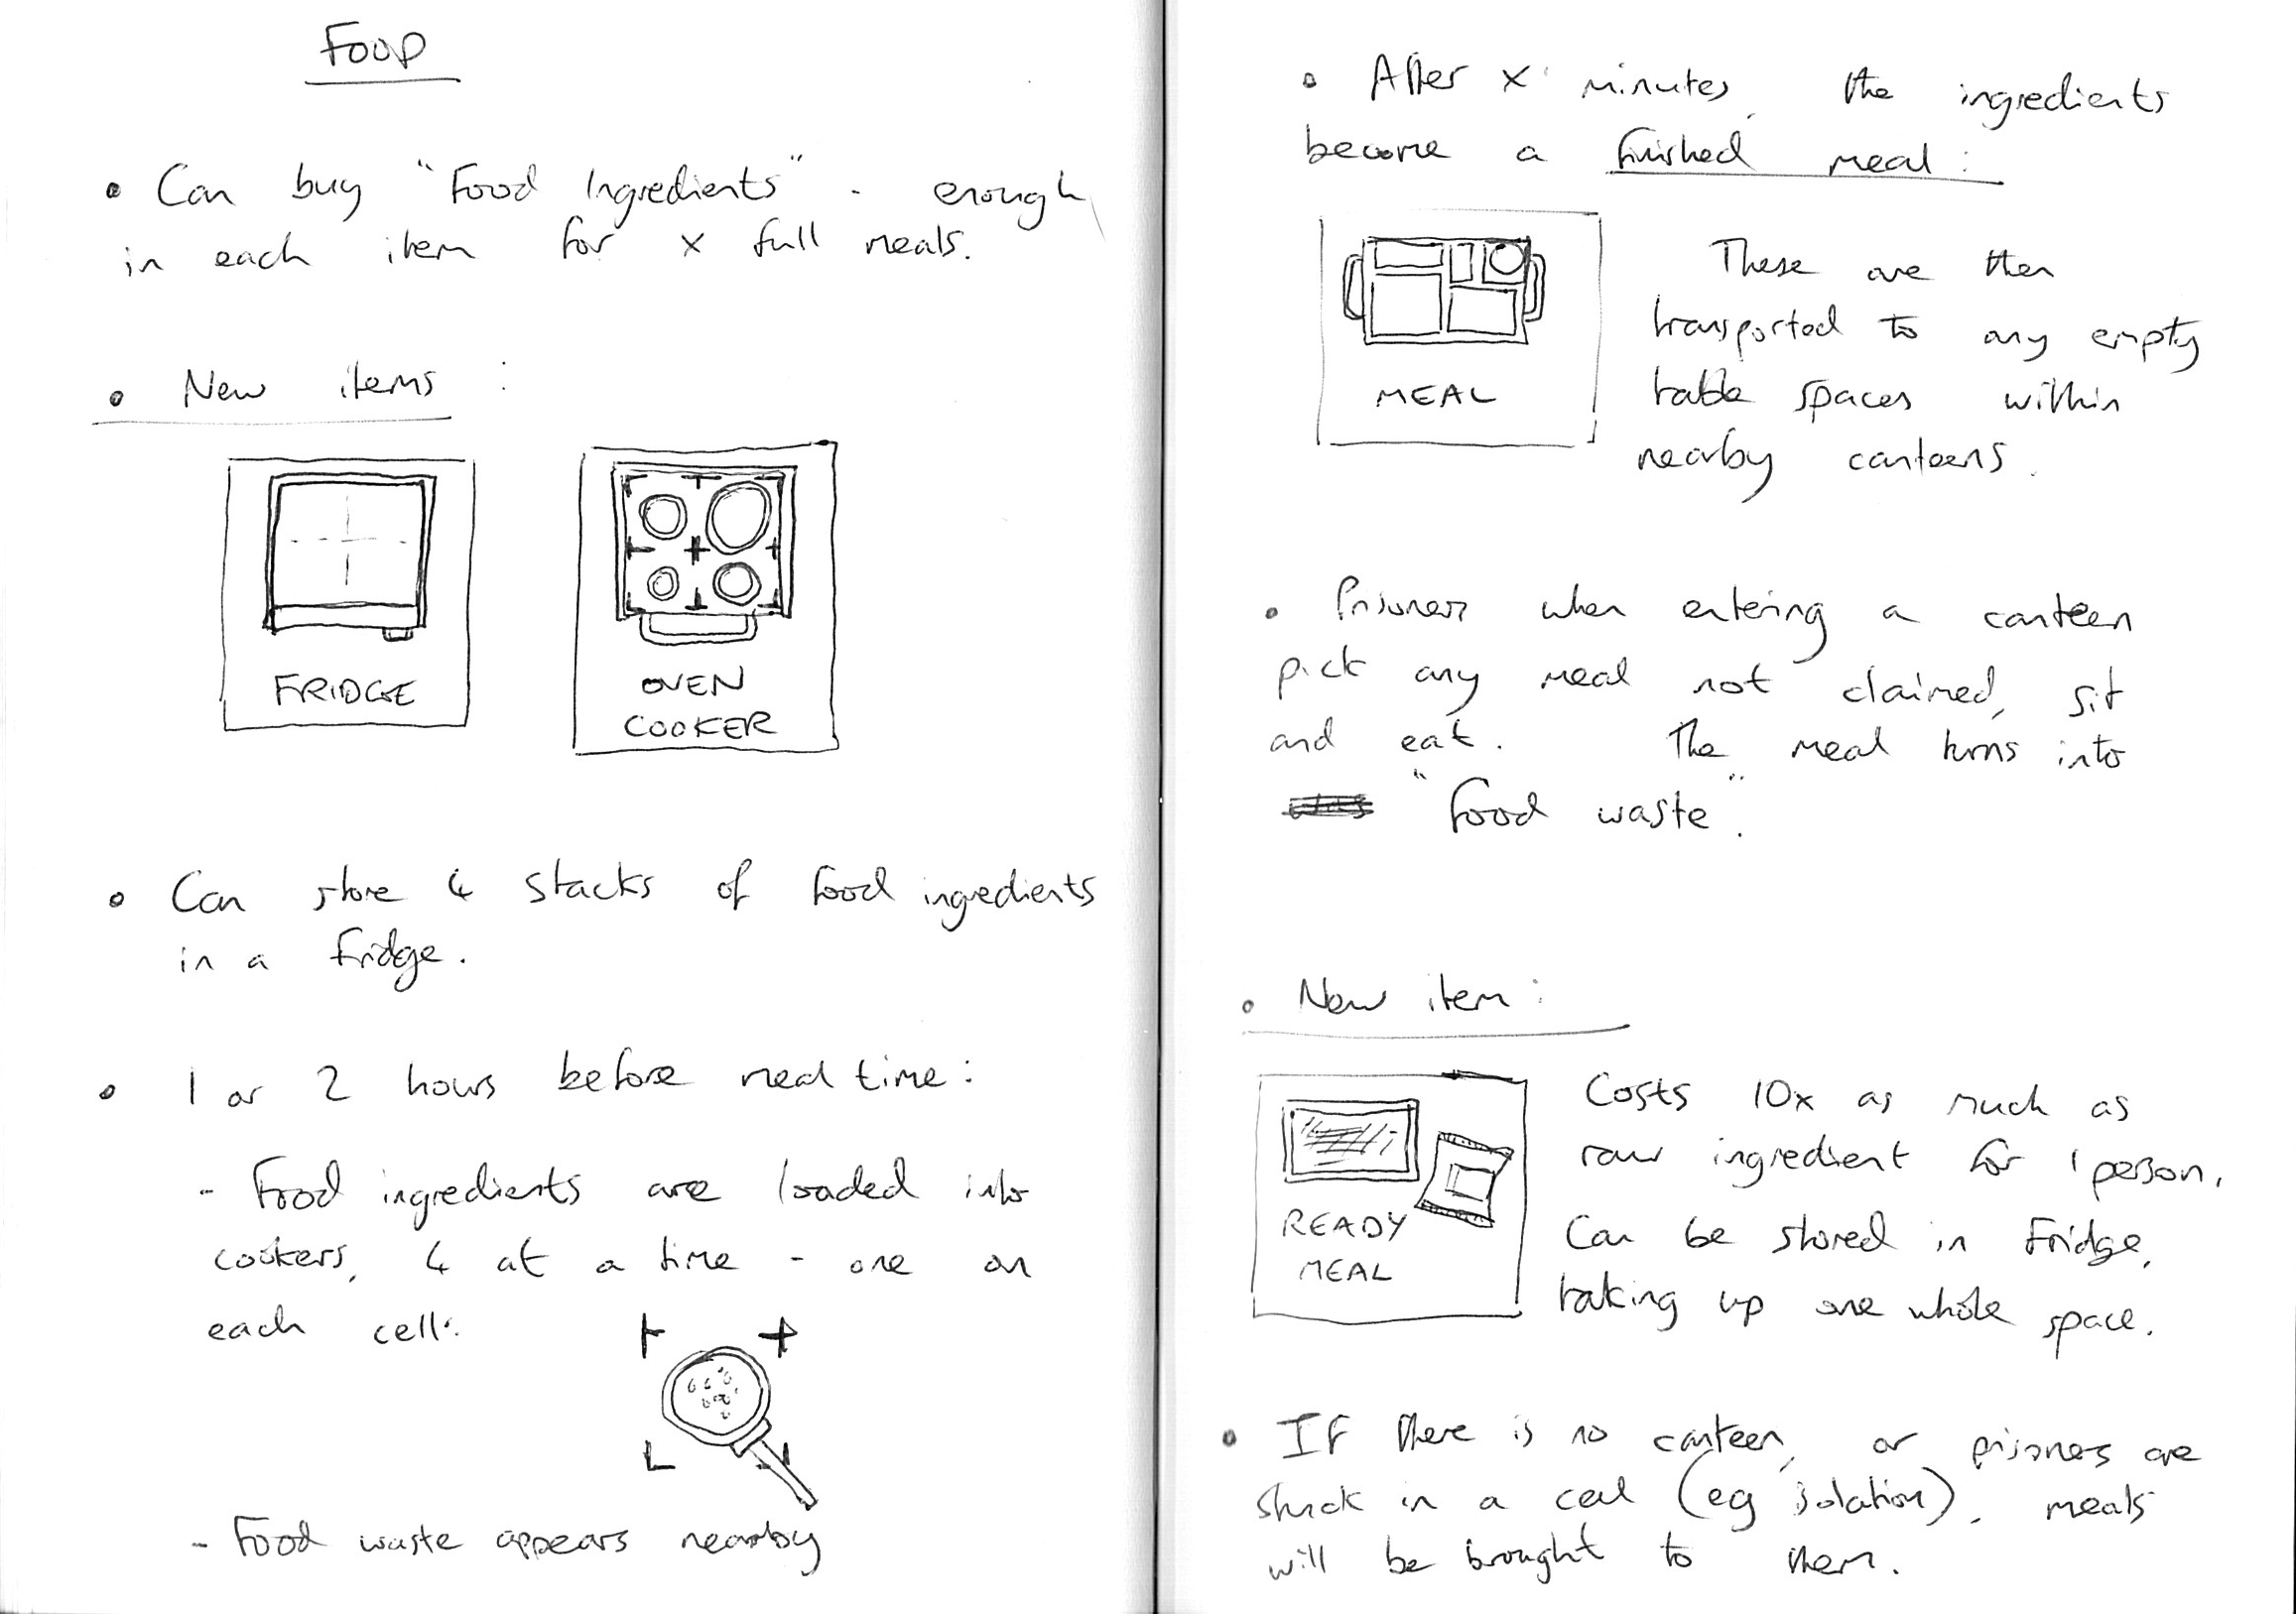 FOOD
• Can buy "Food Ingredients" - enough
in each item for x full meals.
• New items :
FRIDGE
OVEN
COOKER
• Can store 4 stacks of food ingredients
in a fridge.
• 1 or 2 hours before meal time :
- Food ingredients are loaded into
cookers, 4 at a time - one on
each cell:
- Food waste appears nearby
• After x minutes, the ingredients
become a finished meal :
MEAL
These are then
transported to any empty
table spaces within
nearby canteens.
• Prisoners when entering a canteen
pick any meal not claimed, sit
and eat. The meal turns into
"food waste".
• New item :
READY
MEAL
Costs 10x as much as
raw ingredient for 1 person.
Can be stored in Fridge,
taking up one whole space.
• If there is no canteen, or prisoners are
stuck in a cell (eg isolation), meals
will be brought to them.